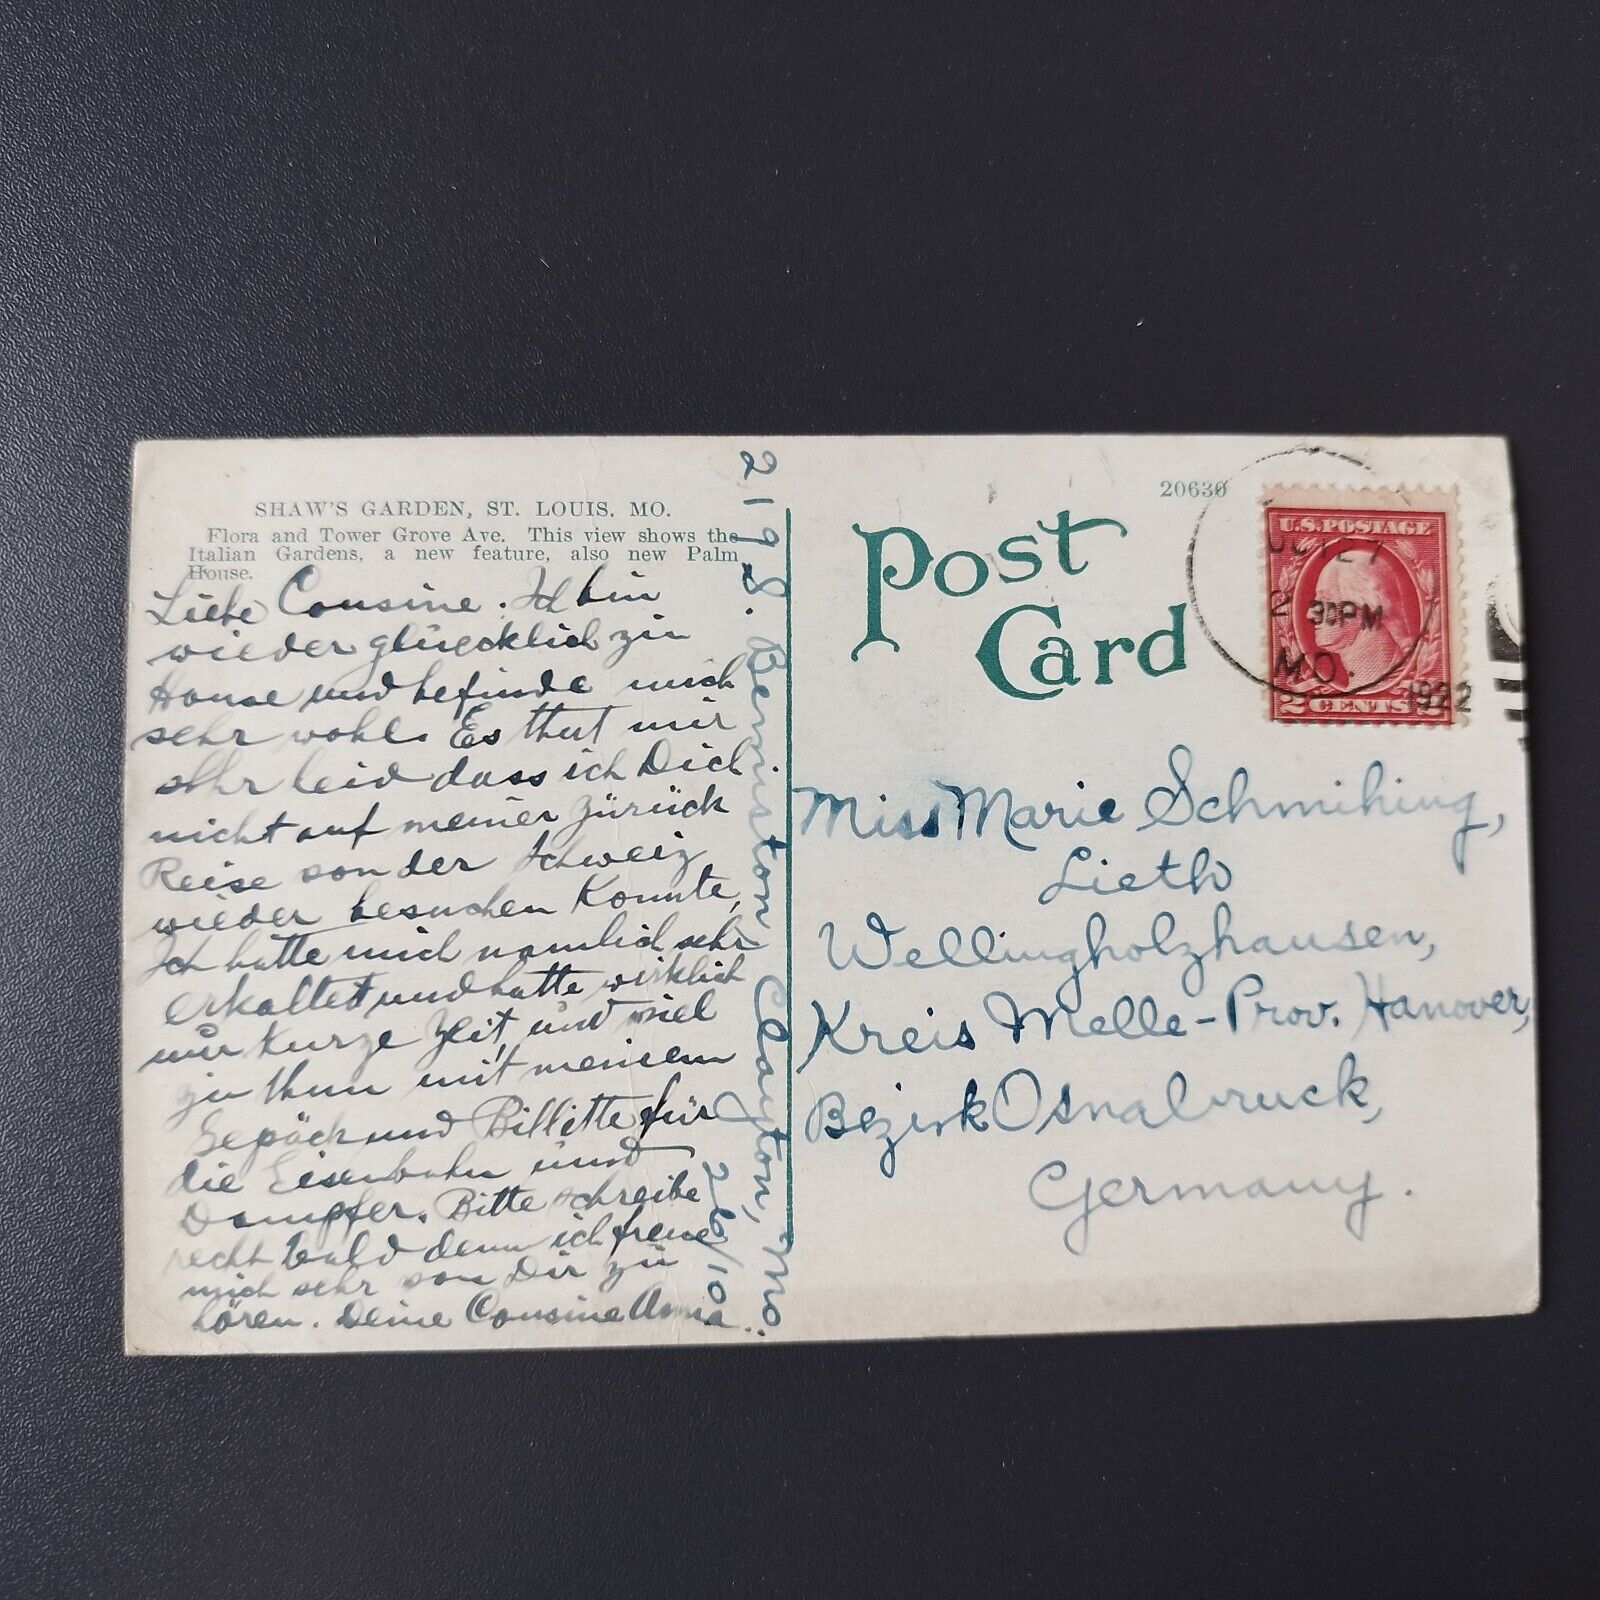 SHAW'S GARDEN, ST. LOUIS. MO.
Flora and Tower Grove Ave. This view shows the
Italian Gardens, a new feature, also new Palm
House.
Liebe Cousine. Ich bin
wieder glücklich zu
Hause und befinde mich
sehr wohl. Es thut mir
sehr leid dass ich Dich
nicht auf meiner zürück
Reise von der Schweiz
wieder besuchen konnte,
Ich hatte mich namlich sehr
erkaltet und hatte wirklich
nur kurze Zeit, und viel
zu thun mit meinem
Gepäck und Billette für
die Eisenbahn und
Dampfer. Bitte schreibe
recht bald denn ich freue
mich sehr von Dir zu
hören. Deine Cousine Anna
219 S. Bemiston, Clayton, Mo.
26/10
Post
Card
20630
U.S. POSTAGE
2 CENTS 2
OCT 27
2 30 PM
MO.
1922
Miss Marie Schmihing,
Lieth
Wellingholzhausen,
Kreis Melle-Prov. Hanover,
Bezirk Osnabruck,
Germany.